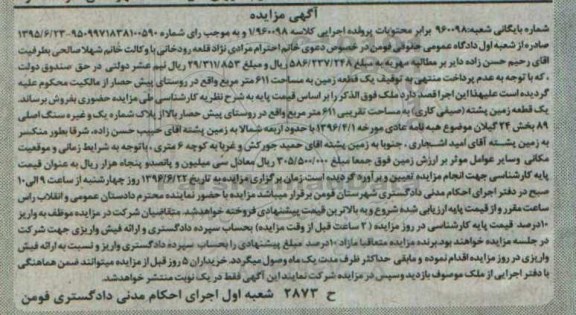 آگهی مزایده
شماره بایگانی شعبه:۹۶۰۰۹۸ برابر محتویات پرونده اجرایی کلاسه ۱/۹۶۰۰۹۸ و به موجب رای شماره ۹۵۰۹۹۷۱۸۳۸۱۰۰۵۹۰-۱۳۹۵/۶/۲۳
صادره از شعبه اول دادگاه عمومی حقوقی فومن در خصوص دعوی خانم احترام مرادی نژاد قلعه رودخانی با وکالت خانم شهلا صالحی بطرفیت
آقای رحیم حسن زاده دایر بر مطالبه مهریه به مبلغ ۵۸۶/۲۳۷/۲۴۸ ریال و مبلغ ۲۹/۳۱۱/۸۵۳ ریال نیم عشر دولتی در حق صندوق دولت
، که با توجه به عدم پرداخت منتهی به توقیف یک قطعه زمین به مساحت ۶۱۱ متر مربع واقع در روستای پیش حصار از مالکیت محکوم علیه
گردیده است علیهذا این اجرا قصد دارد ملک فوق الذکر را بر اساس قیمت پایه به شرح نظریه کارشناسی طی مزایده حضوری بفروش برساند.
یک قطعه زمین پشته (صیفی کاری) به مساحت تقریبی ۶۱۱ متر مربع واقع در روستای پیش حصار بالا از پلاک شماره یک و غیره سنگ اصلی
۸۹ بخش ۲۴ گیلان موضوع هبه نامه عادی مورخه ۱۳۹۶/۴/۱ با حدود اربعه شمالا به زمین پشته آقای حبیب حسن زاده، شرقا بطور منکسر
به زمین پشته آقای امید اشجاری ، جنوبا به زمین پشته آقای حمید جورکش و غربا به کوچه ۶ متری . باتوجه به شرایط زمانی و موقعیت
مکانی وسایر عوامل موثر بر ارزش زمین فوق جمعا مبلغ ۳۰۵/۵۰۰/۰۰۰ ریال معادل سی میلیون و پانصدو پنجاه هزار ریال به عنوان قیمت
پایه کارشناسی جهت انجام مزایده تعیین و برآورد گردیده است زمان برگزاری مزایده به تاریخ ۱۳۹۶/۶/۲۲ روز چهارشنبه از ساعت ۹ الی ۱۰
صبح در دفتر اجرای احکام مدنی دادگستری شهرستان فومن برقرار میباشد مزایده با حضور نماینده محترم دادستان عمومی و انقلاب راس
ساعت مقرر و از قیمت پایه ارزیابی شده شروع و به بالاترین قیمت پیشنهادی فروخته خواهد شد. متقاضیان شرکت در مزایده موظف به واریز
۱۰درصد قیمت پایه کارشناسی در روز مزایده (۲ ساعت قبل از وقت مزایده) بحساب سپرده دادگستری و ارائه فیش واریزی جهت شرکت
در جلسه مزایده خواهند بود.برنده مزایده متعاقبا مازاد ۱۰درصد مبلغ پیشنهادی را بحساب سپرده دادگستری واریز و نسبت به ارائه فیش
واریزی در روز مزایده اقدام نموده و مابقی حداکثر ظرف مدت یک ماه وصول میگردد. خریداران ۵ روز قبل از مزایده میتوانند ضمن هماهنگی
با دفتر اجرایی از ملک موصوف بازدید و سپس در مزایده شرکت نمایند این آگهی فقط در یک نوبت منتشر خواهد شد.
ح ۲۸۷۳ شعبه اول اجرای احکام مدنی دادگستری فومن